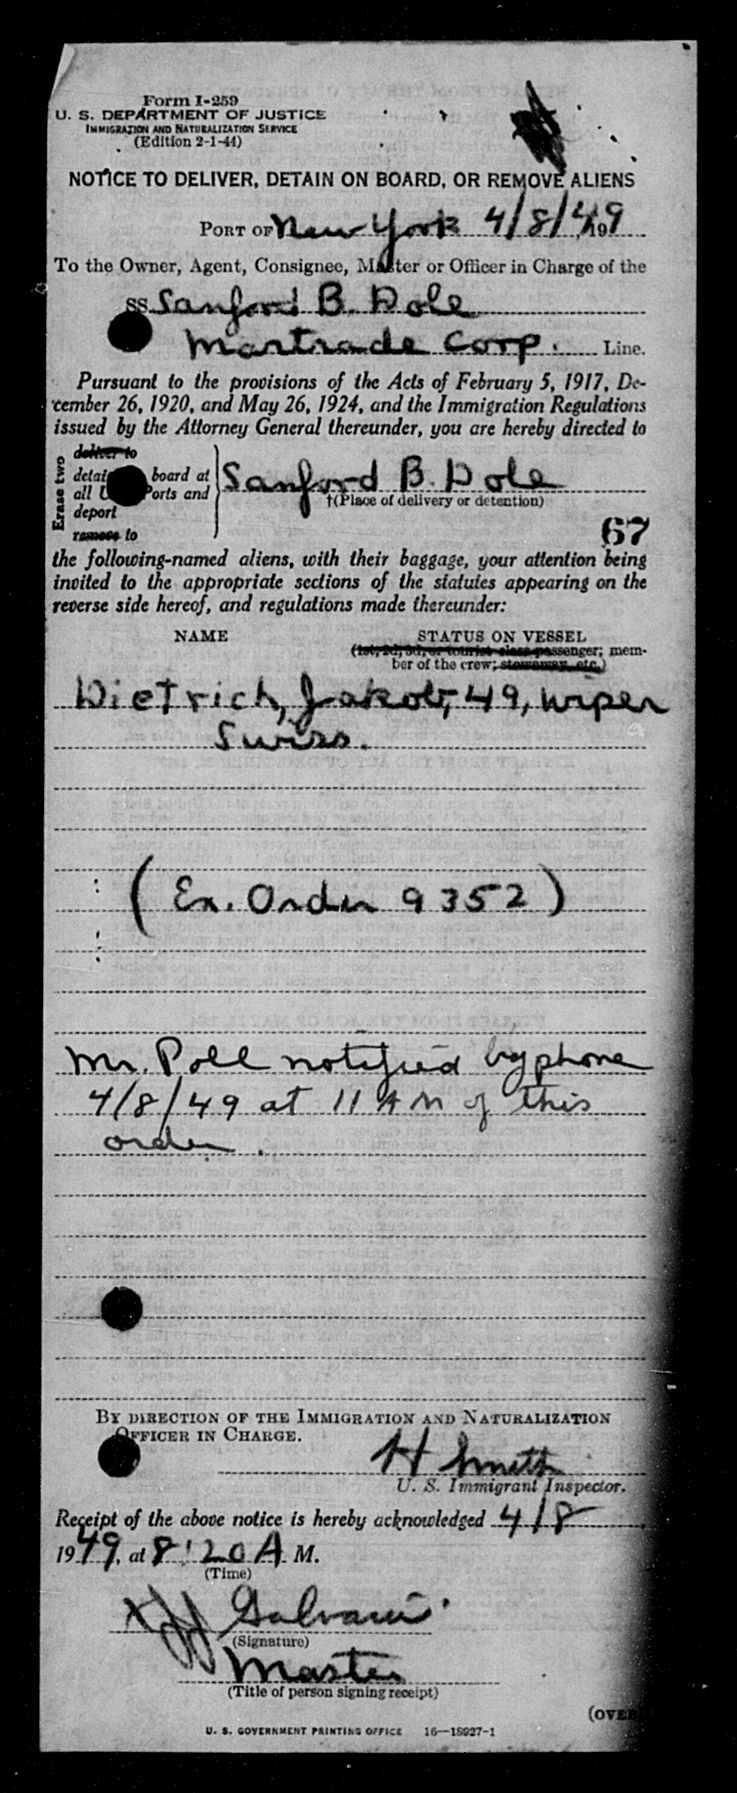 Form I-259
U. S. DEPARTMENT OF JUSTICE
IMMIGRATION AND NATURALIZATION SERVICE
(Edition 2-1-44)
NOTICE TO DELIVER, DETAIN ON BOARD, OR REMOVE ALIENS
PORT OF New York 4/8/49, 19
To the Owner, Agent, Consignee, Master or Officer in Charge of the
SS Sanford B. Dole
Martrade Corp. Line.
Pursuant to the provisions of the Acts of February 5, 1917, De-
cember 26, 1920, and May 26, 1924, and the Immigration Regulations
issued by the Attorney General thereunder, you are hereby directed to
Erase two
deliver to
detain board at
all U orts and
deport
remove to
Sanford B. Dole
†(Place of delivery or detention)
67
the following-named aliens, with their baggage, your attention being
invited to the appropriate sections of the statutes appearing on the
reverse side hereof, and regulations made thereunder:
NAME STATUS ON VESSEL
(1st, 2d, 3d, or tourist class passenger; mem-
ber of the crew; stowaway, etc.)
Dietrich, Jakob, 49, Wiper
Swiss.
(Ex. Order 9352)
Mr. Poll notified by phone
4/8/49 at 11 AM of this
order.
BY DIRECTION OF THE IMMIGRATION AND NATURALIZATION
OFFICER IN CHARGE.
H Smith
U. S. Immigrant Inspector.
Receipt of the above notice is hereby acknowledged 4/8
1949, at 8:20 A M.
(Time)
Galvani
(Signature)
Master
(Title of person signing receipt)
(OVER
U. S. GOVERNMENT PRINTING OFFICE 16—18927-1